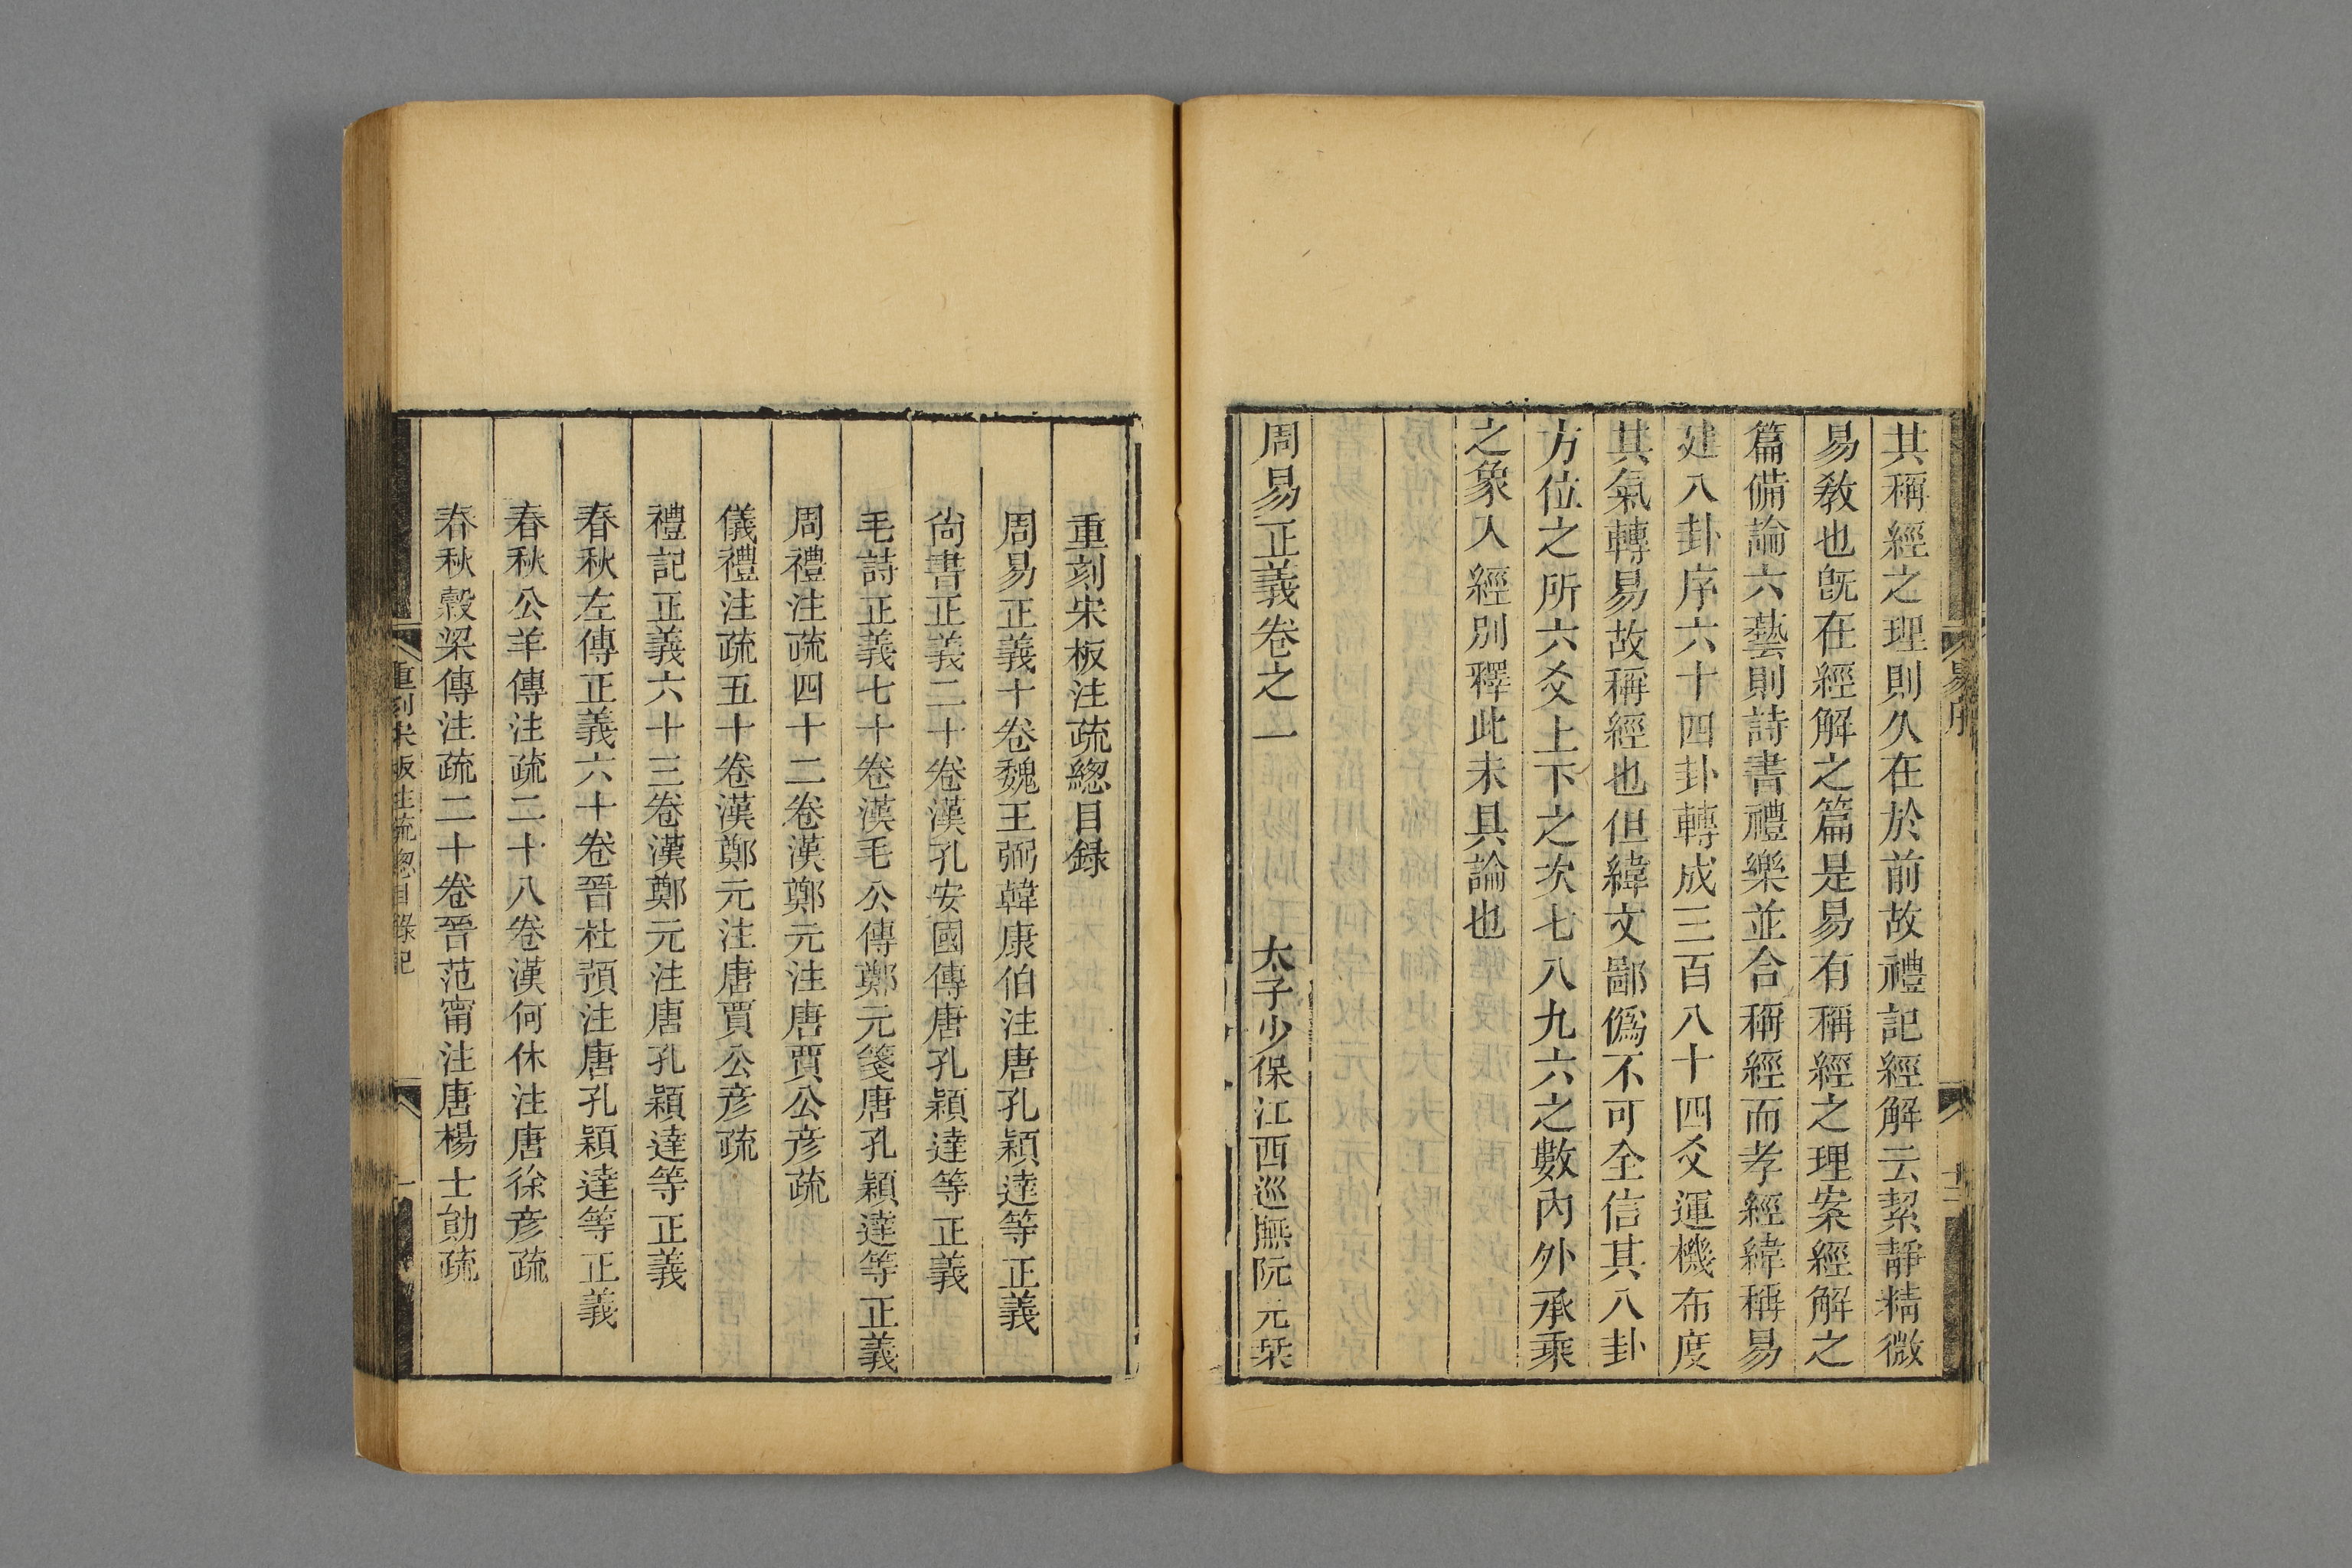 易序
其稱經之理則久在於前故禮記經解云絜靜精微
易敎也旣在經解之篇是易有稱經之理案經解之
篇備論六藝則詩書禮樂並合稱經而孝經緯稱易
建八卦序六十四卦轉成三百八十四爻運機布度
其氣轉易故稱經也但緯文鄙僞不可全信其八卦
方位之所六爻上下之次七八九六之數內外承乘
之象入經別釋此未具論也
周易正義卷之一 太子少保江西巡撫阮元栞
重刻宋板注疏緫目録
周易正義十卷魏王弼韓康伯注唐孔穎達等正義
尙書正義二十卷漢孔安國傳唐孔穎達等正義
毛詩正義七十卷漢毛公傳鄭元箋唐孔穎達等正義
周禮注疏四十二卷漢鄭元注唐賈公彥疏
儀禮注疏五十卷漢鄭元注唐賈公彥疏
禮記正義六十三卷漢鄭元注唐孔穎達等正義
春秋左傳正義六十卷晉杜預注唐孔穎達等正義
春秋公羊傳注疏二十八卷漢何休注唐徐彥疏
春秋穀梁傳注疏二十卷晉范甯注唐楊士勛疏
重刻宋板注疏緫目錄記 一